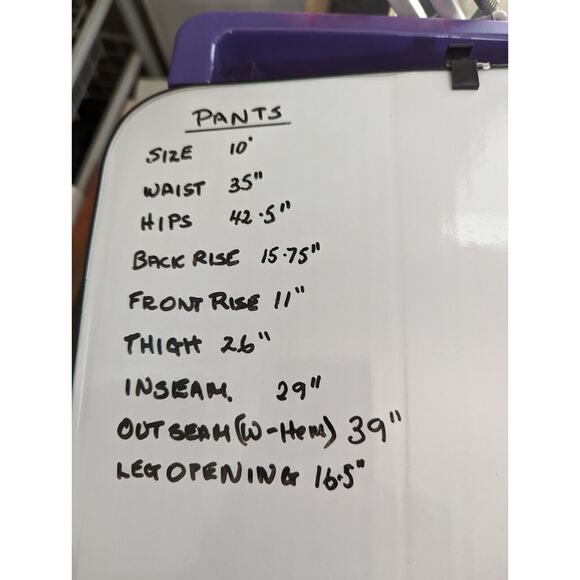 PANTS
SIZE 10'
WAIST 35"
HIPS 42.5"
BACK RISE 15.75"
FRONT RISE 11"
THIGH 26"
INSEAM. 29"
OUTSEAM (W-Hem) 39"
LEG OPENING 16.5"